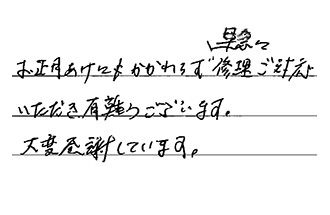 早急に
お正月あけにもかかわらず修理ご対応
いただき有難うございます。
大変感謝しています。